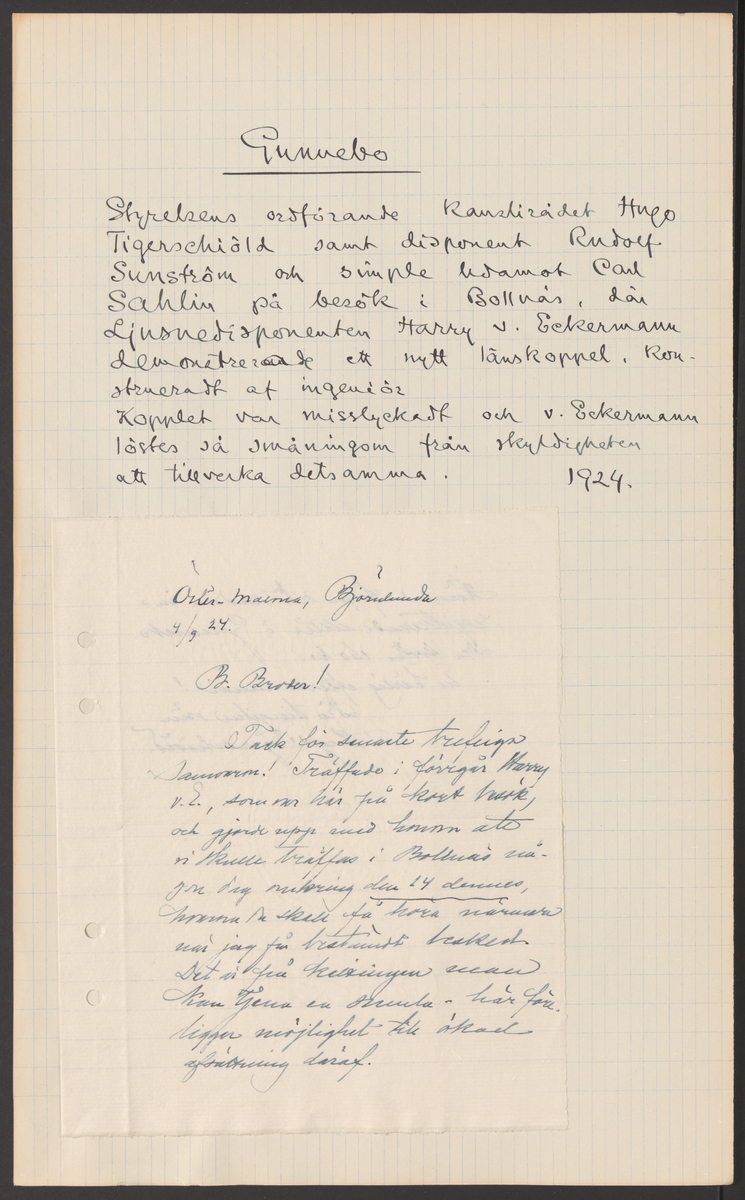 Gunnebo
Styrelsens ordförande Kanslirådet Hugo
Tigerschiöld samt disponent Rudolf
Sunström och simple ledamot Carl
Sahlin på besök i Bollnäs, där
Ljusnedisponenten Harry v. Eckermann
demonstrerade ett nytt länskoppel, kon-
strueradt af ingeniör
Kopplet var misslyckadt och v. Eckermann
löstes så småningom från skyldigheten
att tillverka detsamma. 1924.
Öster-Malma, Björnlunda
4/9 24.
B. Broder!
Tack för senaste trefliga
samvaron! Träffade i förrgår Harry
v. E., som var här på kort besök,
och gjorde upp med honom att
vi skulle träffas i Bollnäs nå-
gon dag omkring den 14 dennes,
hvarom du skall få höra närmare
när jag får bestämdt besked.
Det är på kättingen man
kan tjena en smula - här före-
ligger möjlighet till ökad
afsättning däraf.